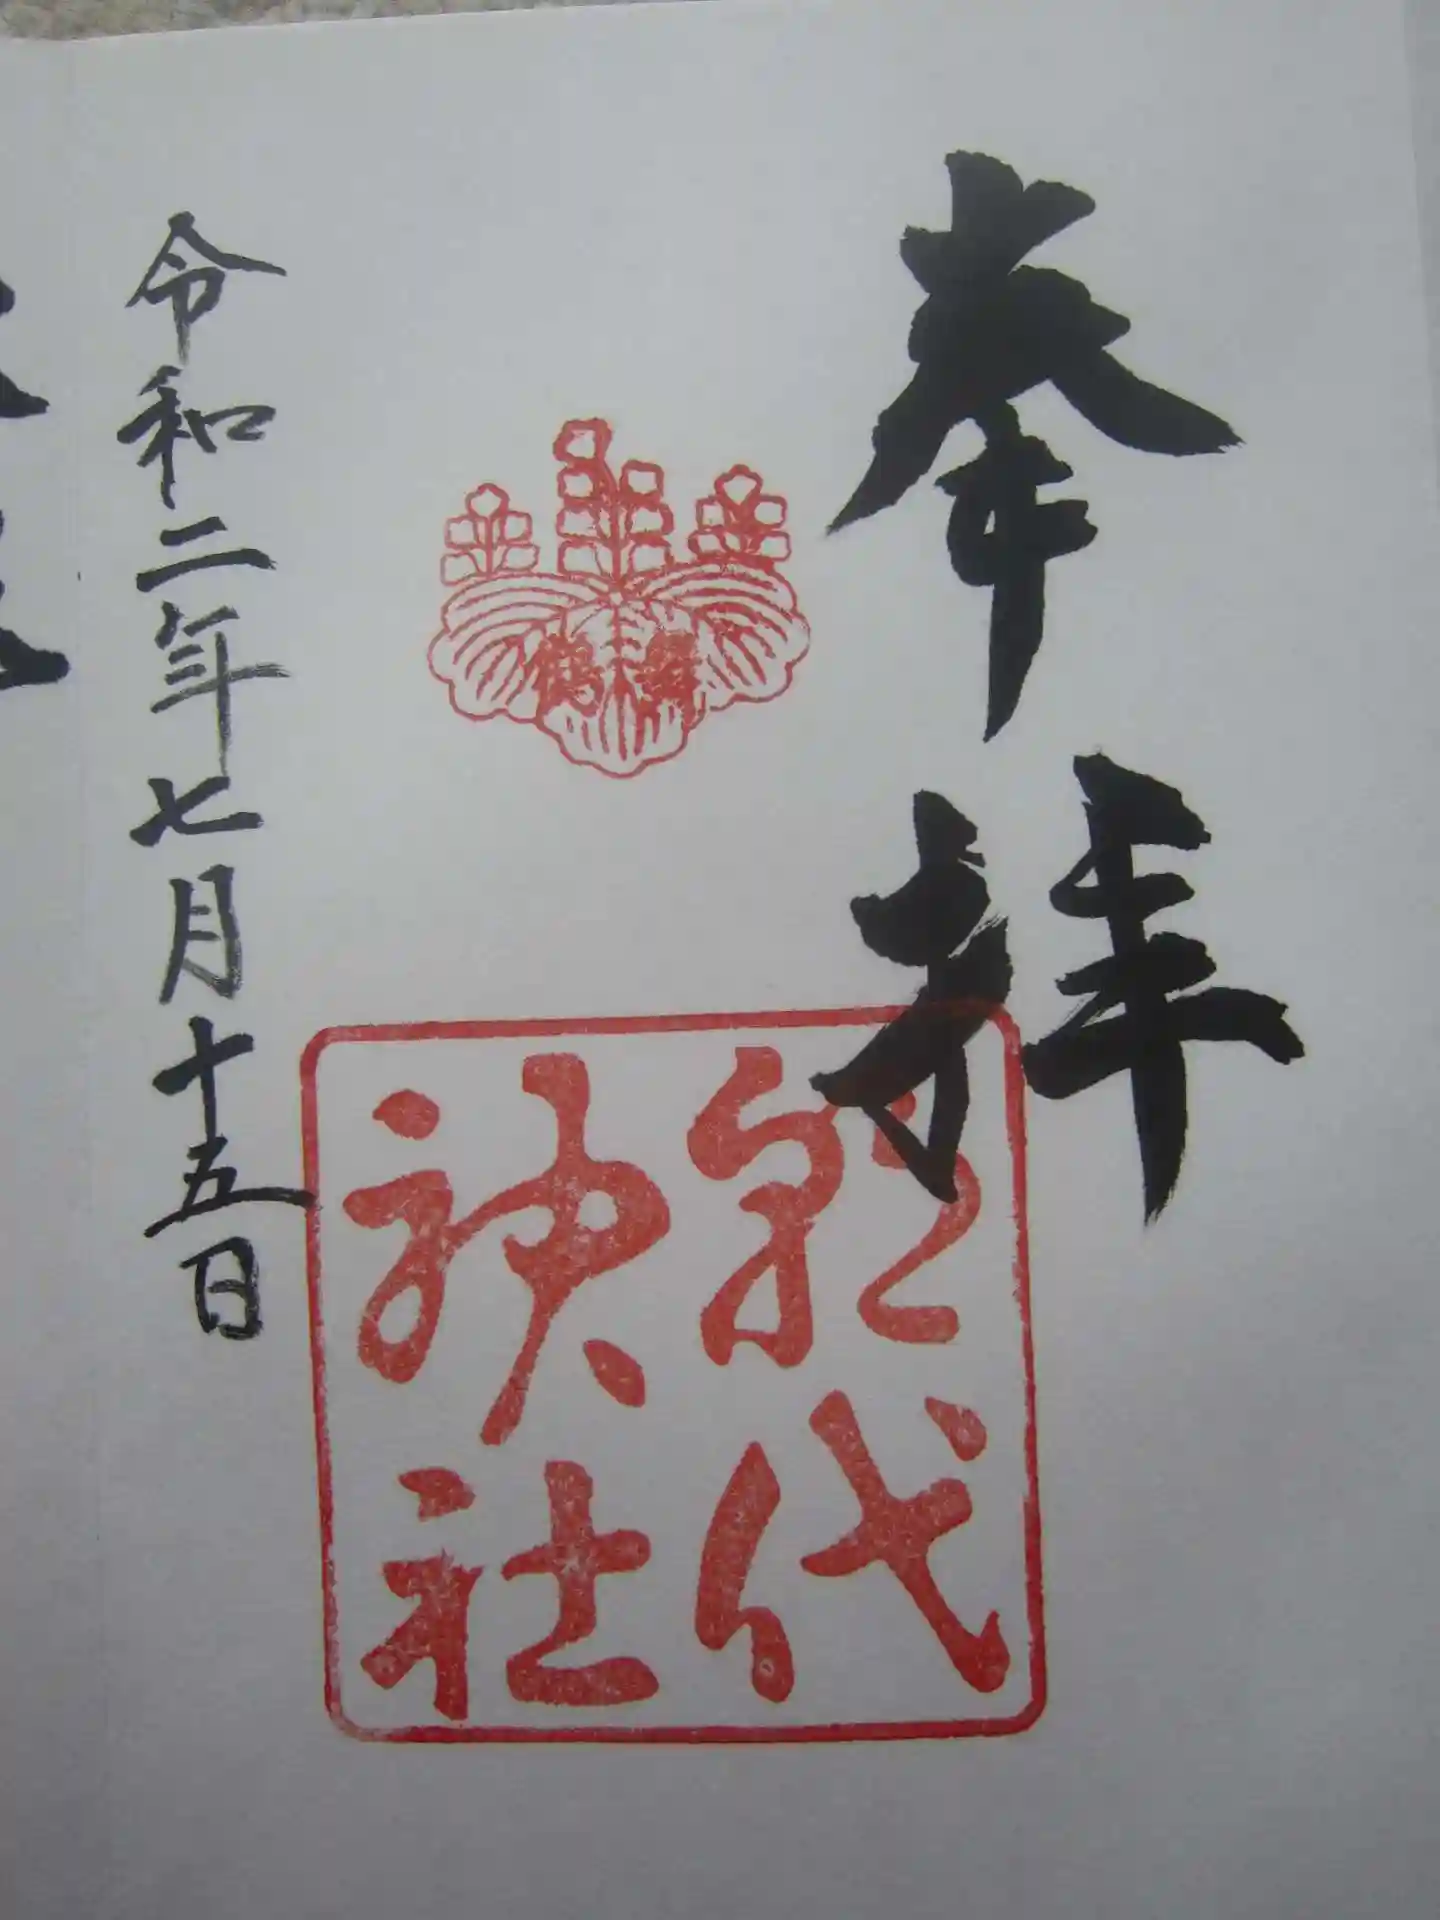 奉拝
舞鶴
朝代
神社
令和二年七月十五日